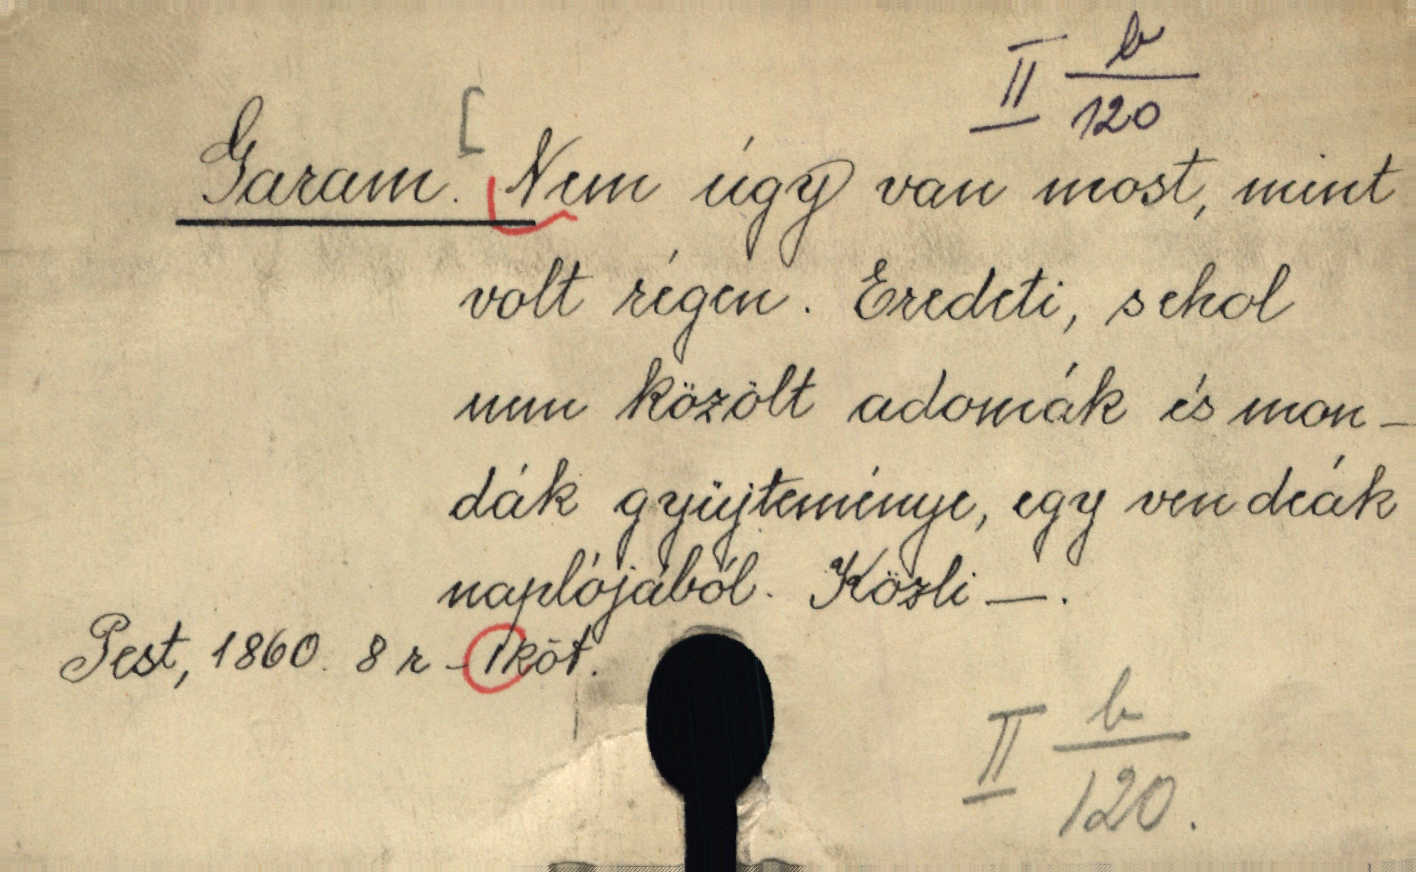 II b/120
Garam. [Nem úgy van most, mint
volt régen. Eredeti, sehol
nem közölt adomák és mon-
dák gyüjteménye, egy ven deák
naplójából. Közli —.
Pest, 1860. 8 r - 1 köt.
II b/120.